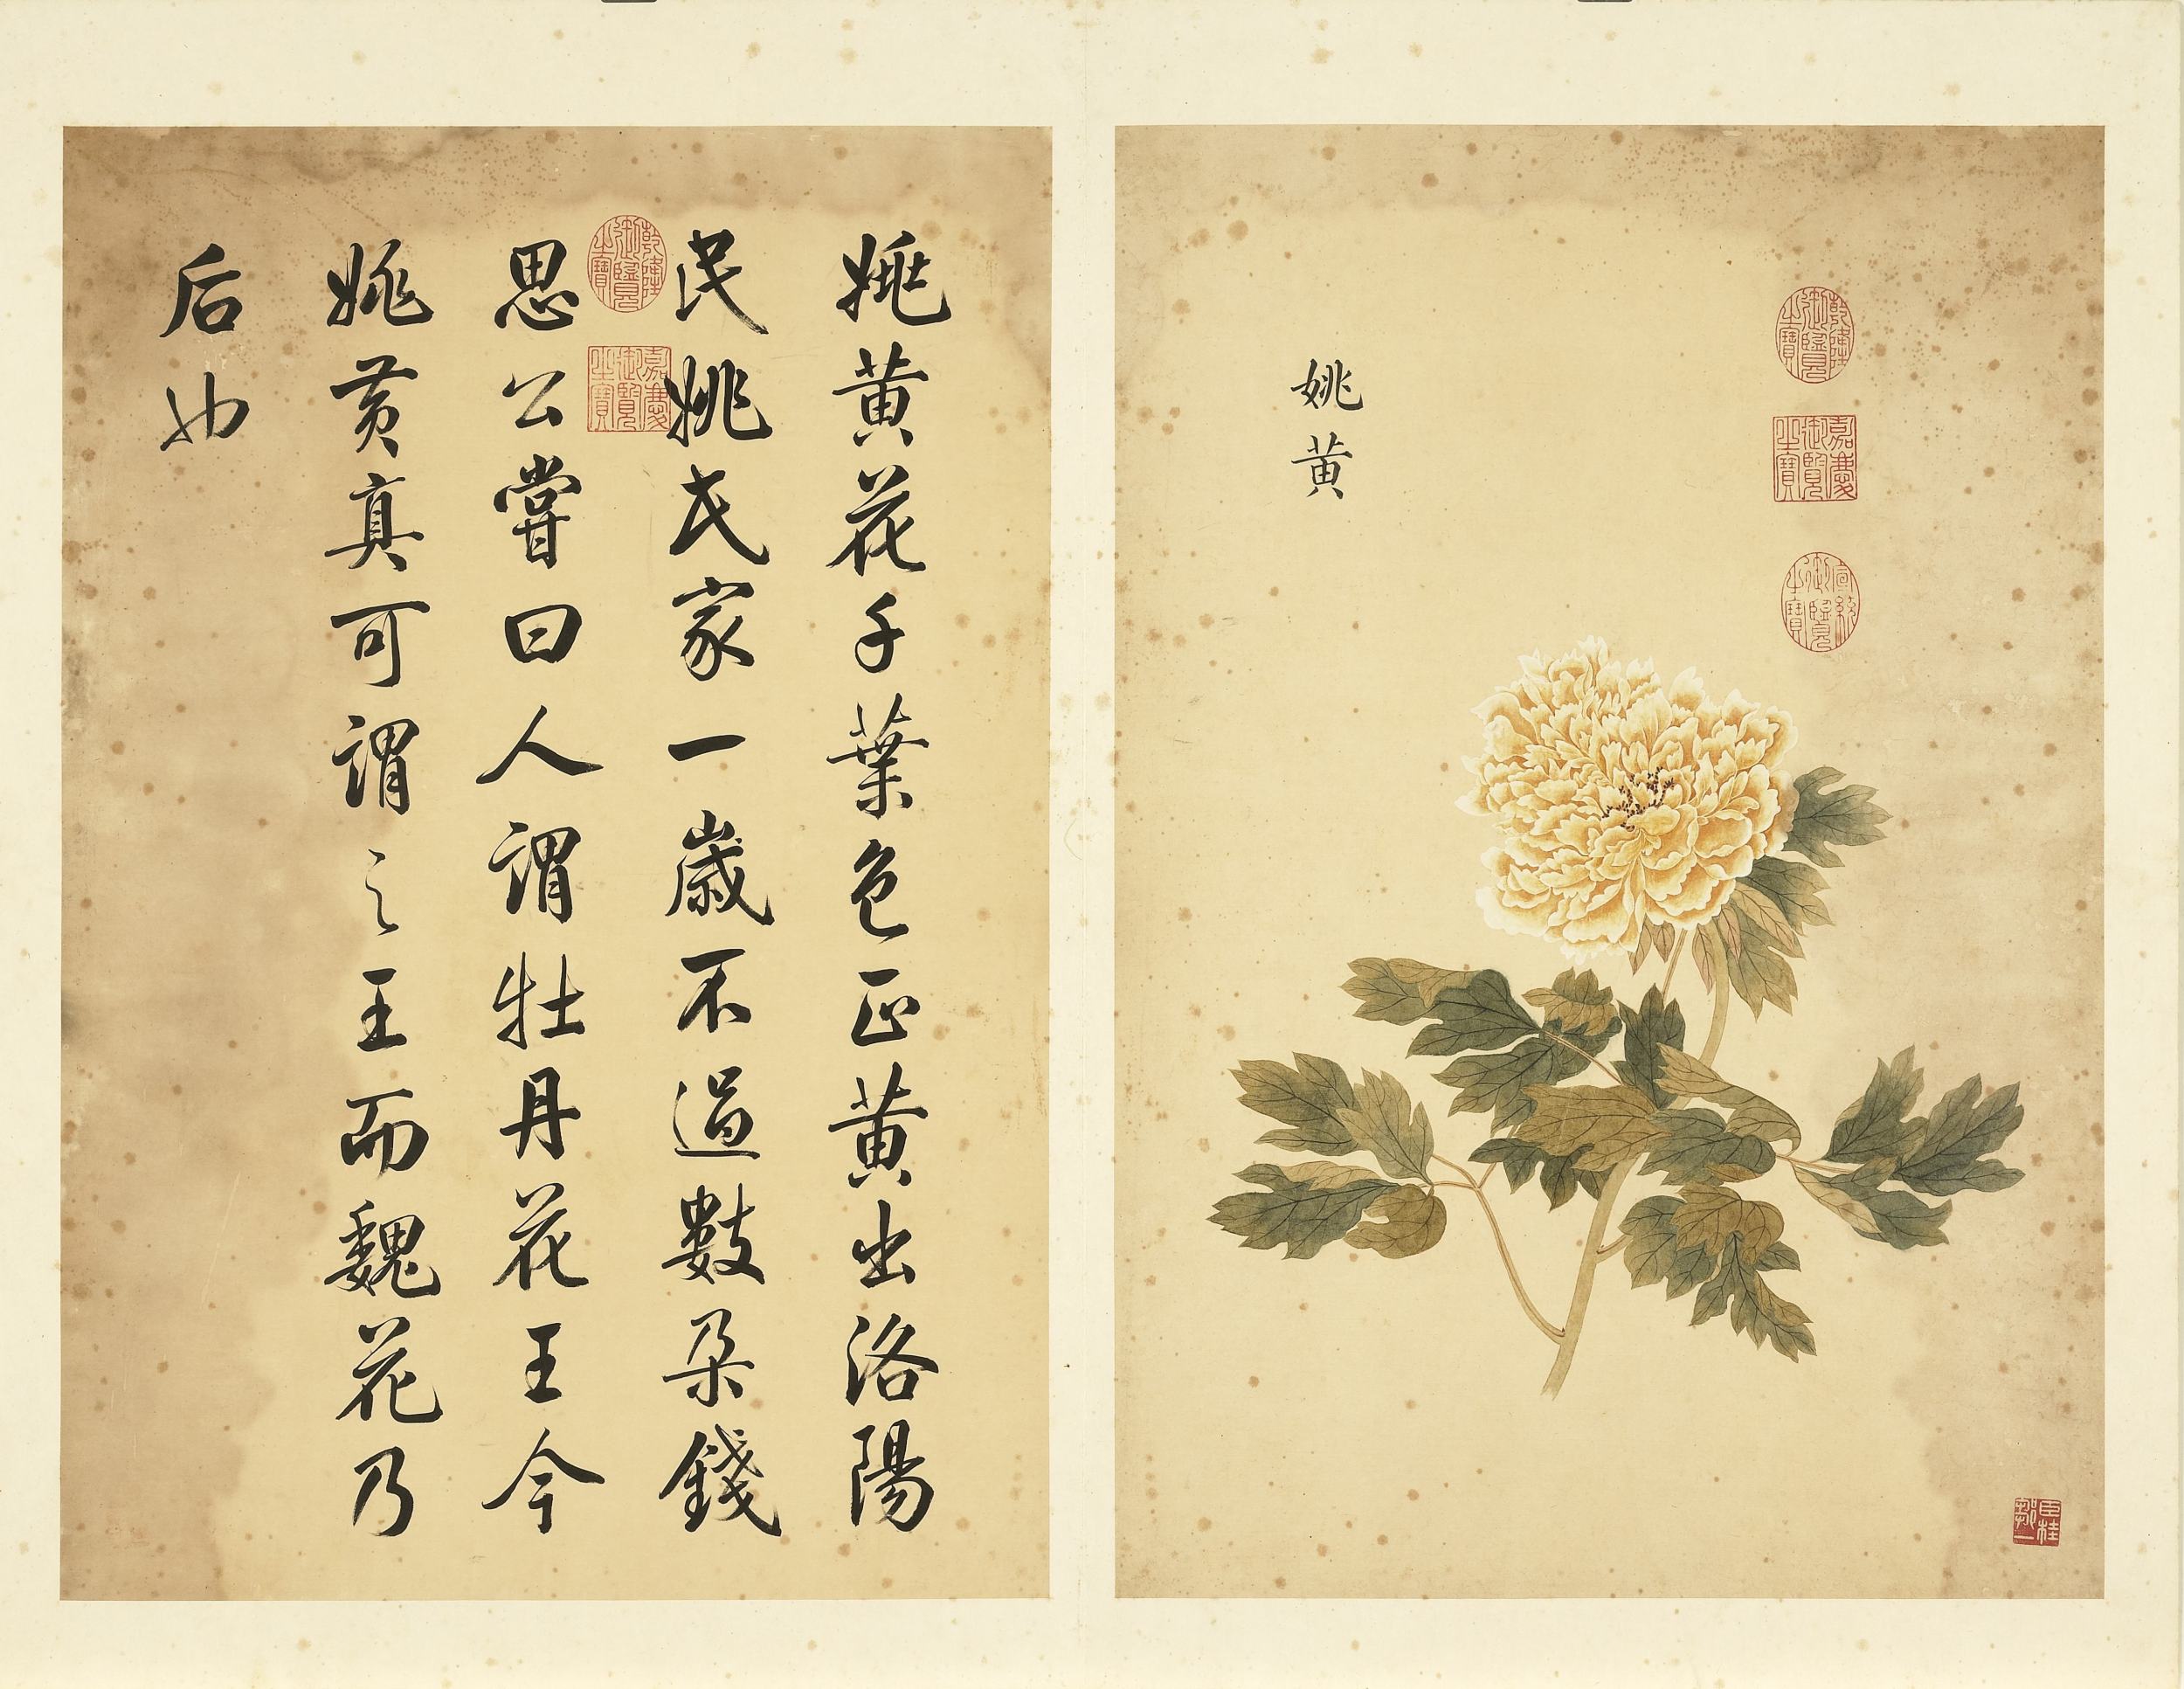 乾隆御覽之寶
嘉慶御覽之寶
宣統御覽之寶
姚黄
臣鄒一桂
姚黄花千葉色正黄出洛陽
民姚氏家一歲不過數朵錢
乾隆御覽之寶
嘉慶御覽之寶
思公嘗曰人謂牡丹花王今
姚黄真可謂之王而魏花乃
后也